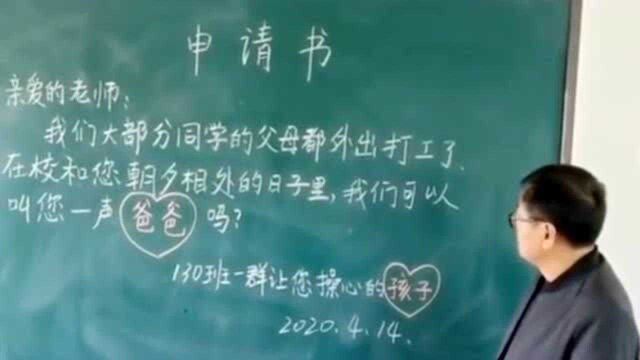 申请书
亲爱的老师：
我们大部分同学的父母都外出打工了、
在校和您朝夕相处的日子里，我们可以
叫您一声爸爸吗？
130班一群让您操心的孩子
2020.4.14.